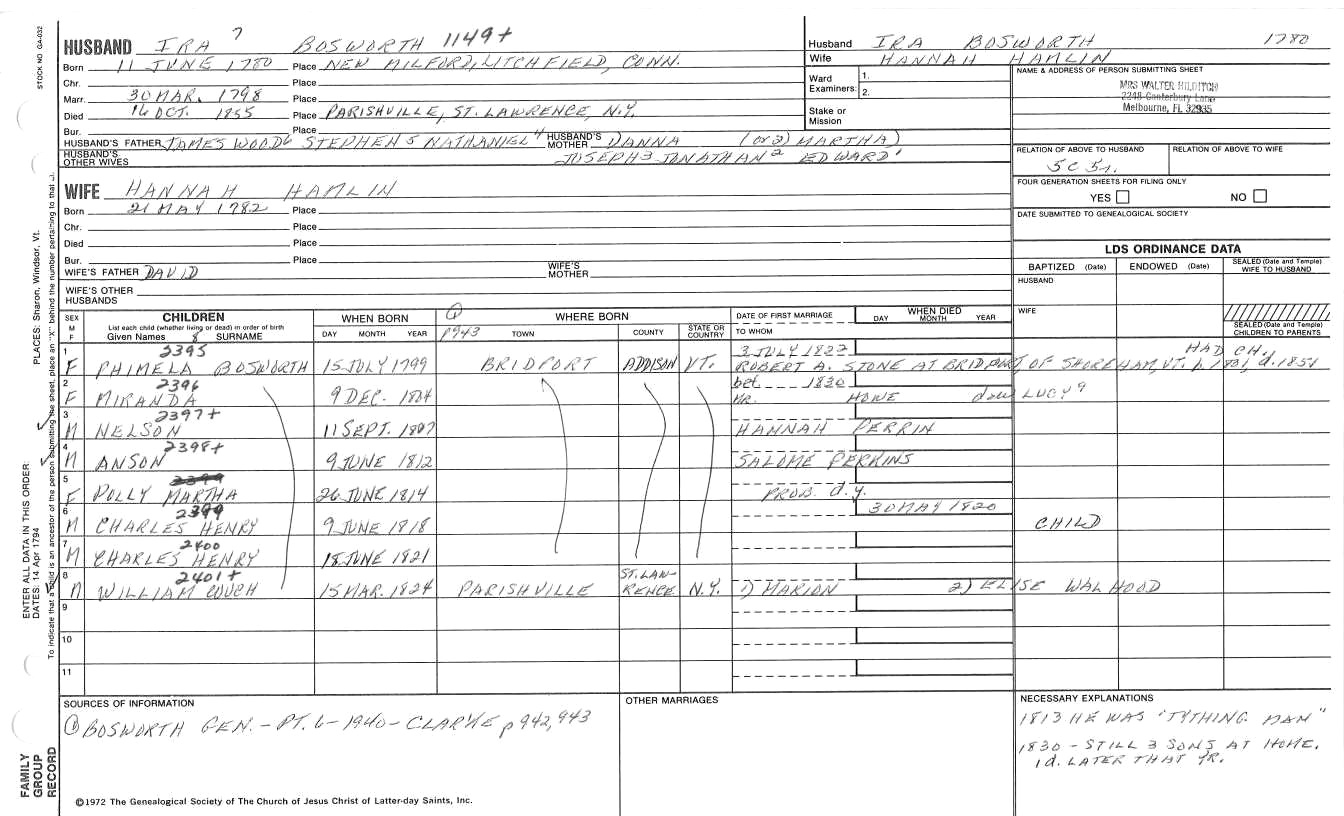 STOCK NO. GA-032
PLACES: Sharon, Windsor, Vt.
ENTER ALL DATA IN THIS ORDER:
DATES: 14 Apr 1794
FAMILY GROUP RECORD
HUSBAND IRA 7 BOSWORTH 1149+
Born 11 JUNE 1780 Place NEW MILFORD, LITCHFIELD, CONN.
Chr. Place
Marr. 30 MAR. 1798 Place
Died 16 OCT. 1855 Place PARISHVILLE, ST. LAWRENCE, N.Y.
Bur. Place
HUSBAND'S FATHER JAMES WOOD 6 STEPHEN 5 NATHANIEL 4 HUSBAND'S MOTHER DANNA (or 2) MARTHA)
HUSBAND'S OTHER WIVES JOSEPH 3 JONATHAN 2 EDWARD 1
WIFE HANNAH HAMLIN
Born 21 MAY 1782 Place
Chr. Place
Died Place
Bur. Place
WIFE'S FATHER DAVID WIFE'S MOTHER
WIFE'S OTHER HUSBANDS
Husband IRA BOSWORTH 1780
Wife HANNAH HAMLIN
Ward Examiners: 1. 2.
Stake or Mission
NAME & ADDRESS OF PERSON SUBMITTING SHEET
MRS WALTER HILDITCH
2248 Canterbury Lane
Melbourne, FL 32935
RELATION OF ABOVE TO HUSBAND RELATION OF ABOVE TO WIFE
5C 5r.
FOUR GENERATION SHEETS FOR FILING ONLY
YES NO
DATE SUBMITTED TO GENEALOGICAL SOCIETY
LDS ORDINANCE DATA
BAPTIZED (Date) ENDOWED (Date) SEALED (Date and Temple) WIFE TO HUSBAND
HUSBAND
WIFE
SEALED (Date and Temple) CHILDREN TO PARENTS
SEX M F CHILDREN WHEN BORN 1 WHERE BORN DATE OF FIRST MARRIAGE WHEN DIED
List each child (whether living or dead) in order of birth
Given Names 8 SURNAME DAY MONTH YEAR p943 TOWN COUNTY STATE OR COUNTRY TO WHOM DAY MONTH YEAR
1 2395 3 JULY 1822 HAD CH.
F PHIMELA BOSWORTH 15 JULY 1799 BRIDPORT ADDISON VT. ROBERT A. STONE AT BRIDPORT, OF SHOREHAM, VT. b 1801, d. 1851
2 2396 bet. 1830
F MIRANDA 9 DEC. 1804 MR. HOWE dau LUCY 9
3 2397+
M NELSON 11 SEPT. 1807 HANNAH PERRIN
4 2398+
M ANSON 9 JUNE 1812 SALOME PERKINS
5 2399
F POLLY MARTHA 26 JUNE 1814 PROB. d.y.
6 2399 30 MAY 1820
M CHARLES HENRY 9 JUNE 1818 CHILD
7 2400
M CHARLES HENRY 18 JUNE 1821
8 2401+
M WILLIAM COUCH 15 MAR. 1824 PARISHVILLE ST. LAWRENCE N.Y. 1) MARION 2) ELISE WALHOOD
9
10
11
SOURCES OF INFORMATION
1 BOSWORTH GEN. - PT. 6 - 1940 - CLARKE p 942, 943
OTHER MARRIAGES
NECESSARY EXPLANATIONS
1813 HE WAS "TYTHING MAN"
1830 - STILL 3 SONS AT HOME.
1 d. LATER THAT YR.
©1972 The Genealogical Society of The Church of Jesus Christ of Latter-day Saints, Inc.